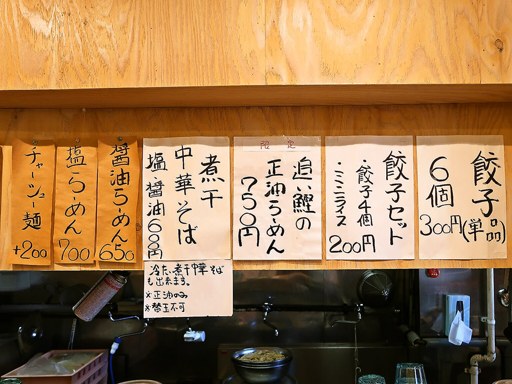 餃子
(単品)
6個
300円
餃子セット
・餃子4個
・ミニライス
200円
限定
追い鰹の
正油らーめん
750円
煮干
中華そば
塩・醤油600円
冷たい煮干中華そば
も出来ます。
※正油のみ
※替玉不可
醤油らーめん
650
塩らーめん
700
チャーシュー麺
+200